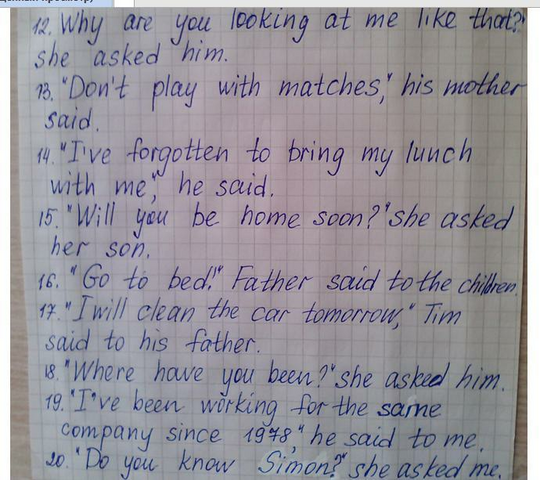 12. Why are you looking at me like that?"
she asked him.
13. "Don't play with matches," his mother
said.
14. "I've forgotten to bring my lunch
with me," he said.
15. "Will you be home soon?" she asked
her son.
16. "Go to bed!" Father said to the children.
17. "I will clean the car tomorrow," Tim
said to his father.
18. "Where have you been?" she asked him.
19. "I've been working for the same
company since 1978," he said to me.
20. "Do you know Simon?" she asked me.